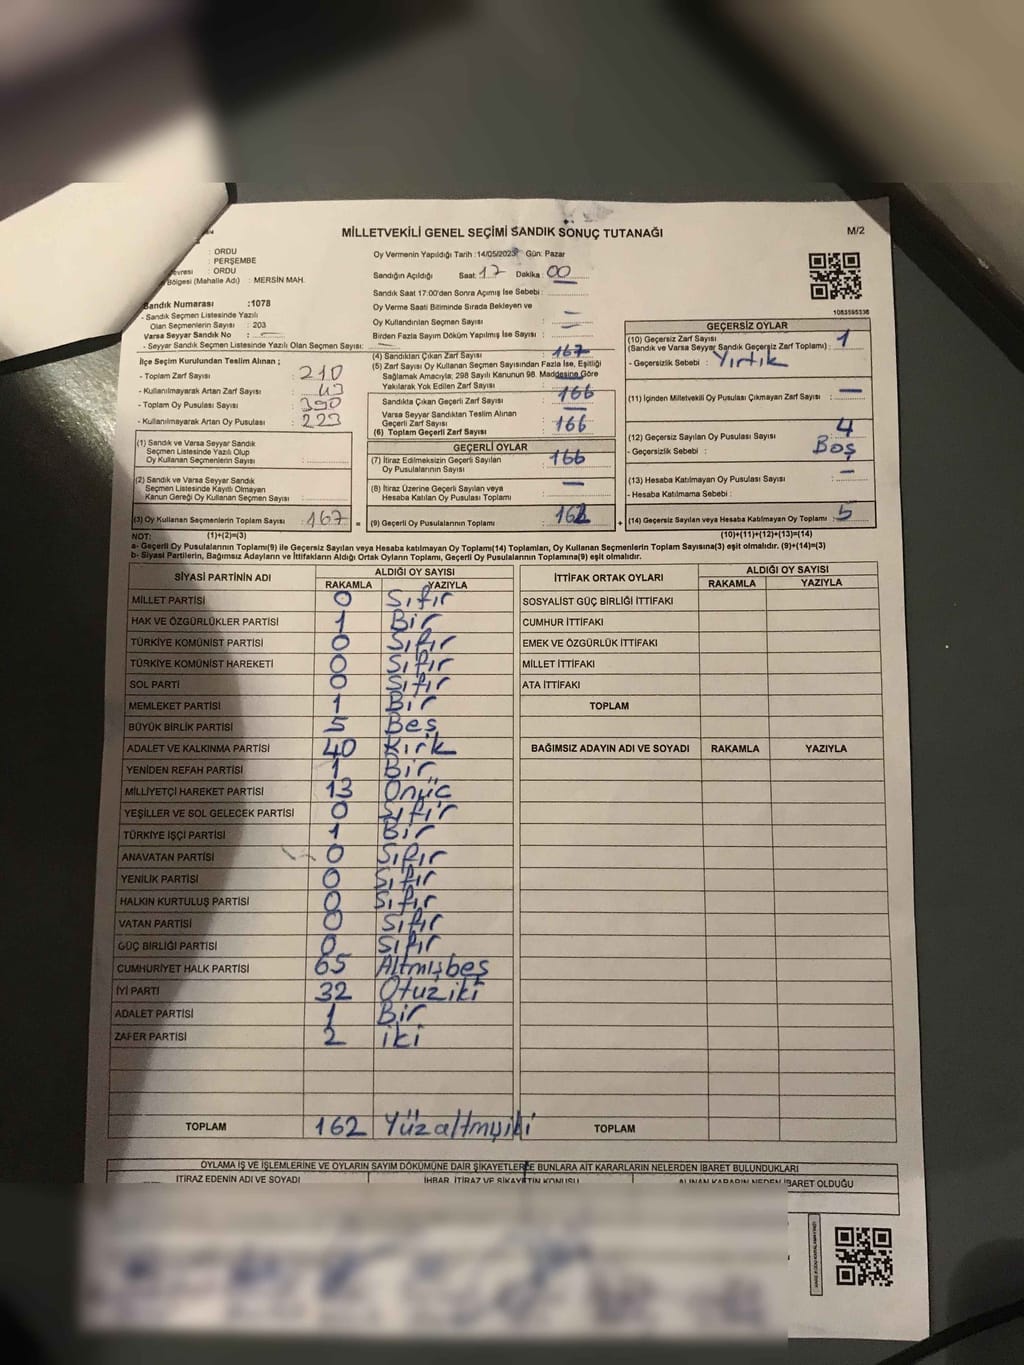 MİLLETVEKİLİ GENEL SEÇİMİ SANDIK SONUÇ TUTANAĞI
M/2
: ORDU
: PERŞEMBE
: ORDU
Bölgesi (Mahalle Adı) : MERSİN MAH.
Sandık Numarası :1078
- Sandık Seçmen Listesinde Yazılı
Olan Seçmenlerin Sayısı : 203
Varsa Seyyar Sandık No :
- Seyyar Sandık Seçmen Listesinde Yazılı Olan Seçmen Sayısı:
Oy Vermenin Yapıldığı Tarih :14/05/2023 Gün: Pazar
Sandığın Açıldığı Saat: 17 Dakika : 00
Sandık Saat 17:00'den Sonra Açımış İse Sebebi :
Oy Verme Saati Bitiminde Sırada Bekleyen ve
Oy Kullandırılan Seçmen Sayısı : —
Birden Fazla Sayım Döküm Yapılmış İse Sayısı : —
1083595336
İlçe Seçim Kurulundan Teslim Alınan ;
- Toplam Zarf Sayısı : 210
- Kullanılmayarak Artan Zarf Sayısı : 43
- Toplam Oy Pusulası Sayısı : 390
- Kullanılmayarak Artan Oy Pusulası : 223
(1) Sandık ve Varsa Seyyar Sandık
Seçmen Listesinde Yazılı Olup
Oy Kullanan Seçmenlerin Sayısı :
(2) Sandık ve Varsa Seyyar Sandık
Seçmen Listesinde Kayıtlı Olmayan
Kanun Gereği Oy Kullanan Seçmen Sayısı :
(3) Oy Kullanan Seçmenlerin Toplam Sayısı : 167 =
(4) Sandıktan Çıkan Zarf Sayısı : 167
(5) Zarf Sayısı Oy Kullanan Seçmen Sayısından Fazla İse, Eşitliği
Sağlamak Amacıyla; 298 Sayılı Kanunun 98. Maddesine Göre
Yakılarak Yok Edilen Zarf Sayısı : —
Sandıkta Çıkan Geçerli Zarf Sayısı : 166
Varsa Seyyar Sandıktan Teslim Alınan
Geçerli Zarf Sayısı : —
(6) Toplam Geçerli Zarf Sayısı : 166
GEÇERLİ OYLAR
(7) İtiraz Edilmeksizin Geçerli Sayılan
Oy Pusulalarının Sayısı : 166
(8) İtiraz Üzerine Geçerli Sayılan veya
Hesaba Katılan Oy Pusulası Toplamı : —
(9) Geçerli Oy Pusulalarının Toplamı : 162 +
GEÇERSİZ OYLAR
(10) Geçersiz Zarf Sayısı
(Sandık ve Varsa Seyyar Sandık Geçersiz Zarf Toplamı) : 1
- Geçersizlik Sebebi : Yırtık
(11) İçinden Milletvekili Oy Pusulası Çıkmayan Zarf Sayısı : —
(12) Geçersiz Sayılan Oy Pusulası Sayısı : 4
- Geçersizlik Sebebi : Boş
(13) Hesaba Katılmayan Oy Pusulası Sayısı : —
- Hesaba Katılmama Sebebi :
(14) Geçersiz Sayılan veya Hesaba Katılmayan Oy Toplamı : 5
NOT: (1)+(2)=(3) (10)+(11)+(12)+(13)=(14)
a- Geçerli Oy Pusulalarının Toplamı(9) ile Geçersiz Sayılan veya Hesaba katılmayan Oy Toplamı(14) Toplamları, Oy Kullanan Seçmenlerin Toplam Sayısına(3) eşit olmalıdır. (9)+(14)=(3)
b- Siyasi Partilerin, Bağımsız Adayların ve İttifakların Aldığı Ortak Oyların Toplamı, Geçerli Oy Pusulalarının Toplamına(9) eşit olmalıdır.
SİYASİ PARTİNİN ADI ALDIĞI OY SAYISI
RAKAMLA YAZIYLA
MİLLET PARTİSİ 0 Sıfır
HAK VE ÖZGÜRLÜKLER PARTİSİ 1 Bir
TÜRKİYE KOMÜNİST PARTİSİ 0 Sıfır
TÜRKİYE KOMÜNİST HAREKETİ 0 Sıfır
SOL PARTİ 0 Sıfır
MEMLEKET PARTİSİ 1 Bir
BÜYÜK BİRLİK PARTİSİ 5 Beş
ADALET VE KALKINMA PARTİSİ 40 Kırk
YENİDEN REFAH PARTİSİ 1 Bir
MİLLİYETÇİ HAREKET PARTİSİ 13 Onüç
YEŞİLLER VE SOL GELECEK PARTİSİ 0 Sıfır
TÜRKİYE İŞÇİ PARTİSİ 1 Bir
ANAVATAN PARTİSİ 0 Sıfır
YENİLİK PARTİSİ 0 Sıfır
HALKIN KURTULUŞ PARTİSİ 0 Sıfır
VATAN PARTİSİ 0 Sıfır
GÜÇ BİRLİĞİ PARTİSİ 0 Sıfır
CUMHURİYET HALK PARTİSİ 65 Altmışbeş
İYİ PARTİ 32 Otuziki
ADALET PARTİSİ 1 Bir
ZAFER PARTİSİ 2 iki
TOPLAM 162 Yüzaltmışiki
İTTİFAK ORTAK OYLARI ALDIĞI OY SAYISI
RAKAMLA YAZIYLA
SOSYALİST GÜÇ BİRLİĞİ İTTİFAKI
CUMHUR İTTİFAKI
EMEK VE ÖZGÜRLÜK İTTİFAKI
MİLLET İTTİFAKI
ATA İTTİFAKI
TOPLAM
BAĞIMSIZ ADAYIN ADI VE SOYADI RAKAMLA YAZIYLA
TOPLAM
OYLAMA İŞ VE İŞLEMLERİNE VE OYLARIN SAYIM DÖKÜMÜNE DAİR ŞİKAYETLERLE BUNLARA AİT KARARLARIN NELERDEN İBARET BULUNDUKLARI
İTİRAZ EDENİN ADI VE SOYADI İHBAR, İTİRAZ VE ŞİKAYETİN KONUSU ALINAN KARARIN NEDEN İBARET OLDUĞU